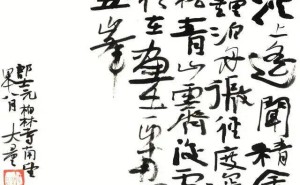 溪上遥闻精舍
鐘泊舟微徑度深
松青山霽後雲
在畫出西南
五峯
郎士元柏林寺南望